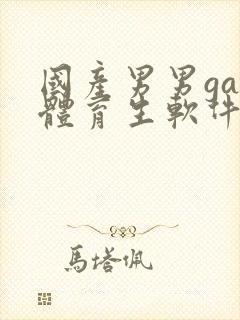 國產男男ga
體育生軟件
馬塔佩